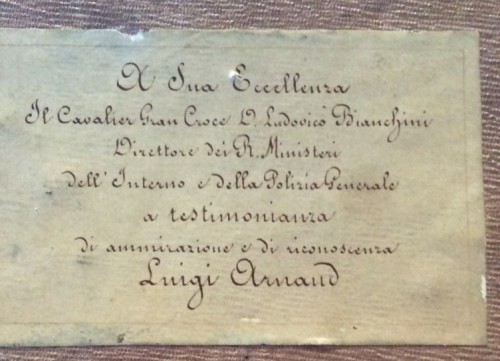 A Sua Eccellenza
Il Cavalier Gran Croce D. Ludovico Bianchini
Direttore dei R. Ministeri
dell' Interno e della Polizia Generale
a testimonianza
di ammirazione e di riconoscenza
Luigi Arnaud